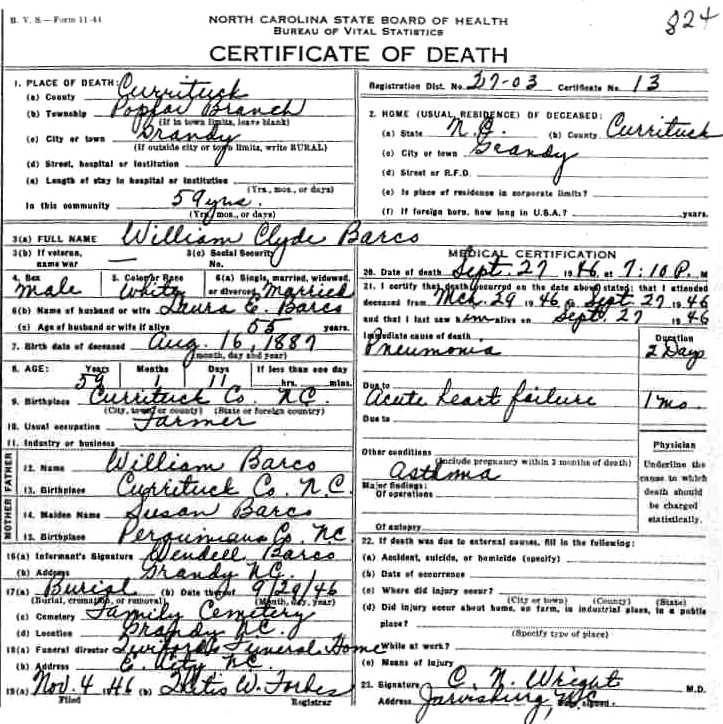 B. V. S.—Form 11-44
NORTH CAROLINA STATE BOARD OF HEALTH
BUREAU OF VITAL STATISTICS
824
CERTIFICATE OF DEATH
1. PLACE OF DEATH:
(a) County Currituck
(b) Township Poplar Branch
(If in town limits, leave blank)
(c) City or town Grandy
(If outside city or town limits, write RURAL)
(d) Street, hospital or institution
(e) Length of stay in hospital or institution
(Yrs., mos., or days)
In this community 59 yrs.
(Yrs., mos., or days)
Registration Dist. No. 27-03 Certificate No. 13
2. HOME (USUAL RESIDENCE) OF DECEASED:
(a) State N.C. (b) County Currituck
(c) City or town Grandy
(d) Street or R.F.D.
(e) Is place of residence in corporate limits?
(f) If foreign born, how long in U.S.A.? years.
3(a) FULL NAME William Clyde Barco
3(b) If veteran, name war — 3(c) Social Security No.
4. Sex male 5. Color or Race White 6(a) Single, married, widowed, or divorced Married
6(b) Name of husband or wife Laura E. Barco
(c) Age of husband or wife if alive 55 years.
7. Birth date of deceased Aug. 16, 1887
(month, day and year)
8. AGE: Years 59 Months 1 Days 11 If less than one day hrs. mins.
9. Birthplace Currituck Co. N.C.
(City, town or county) (State or foreign country)
10. Usual occupation Farmer
11. Industry or business
FATHER
12. Name William Barco
13. Birthplace Currituck Co. N.C.
MOTHER
14. Maiden Name Susan Barco
15. Birthplace Perquimans Co. NC
16(a) Informant's Signature Wendell Barco
(b) Address Grandy N.C.
17(a) Burial (b) Date thereof 9/29/46
(Burial, cremation, or removal) (Month, day, year)
(c) Cemetery Family Cemetery
(d) Location Grandy N.C.
18(a) Funeral director Twiford's Funeral Home
(b) Address E. City N.C.
19(a) Nov. 4 1946 (b) W. Forbes
Filed Registrar
MEDICAL CERTIFICATION
20. Date of death Sept. 27 1946 at 7:10 P. M
21. I certify that death occurred on the date above stated; that I attended
deceased from Mch. 29 1946 to Sept. 27 1946
and that I last saw him alive on Sept. 27 1946
Immediate cause of death Duration
Pneumonia 2 Days
Due to
Acute heart failure 1 mo.
Due to
Other conditions
(Include pregnancy within 3 months of death)
Asthma
Major findings:
Of operations
Of autopsy
Physician
Underline the cause to which death should be charged statistically.
22. If death was due to external causes, fill in the following:
(a) Accident, suicide, or homicide (specify)
(b) Date of occurrence
(c) Where did injury occur?
(City or town) (County) (State)
(d) Did injury occur about home, on farm, in industrial place, in a public
place?
(Specify type of place)
While at work?
(e) Means of injury
23. Signature C. N. Wright M.D.
Address Jarvisburg N.C. signed